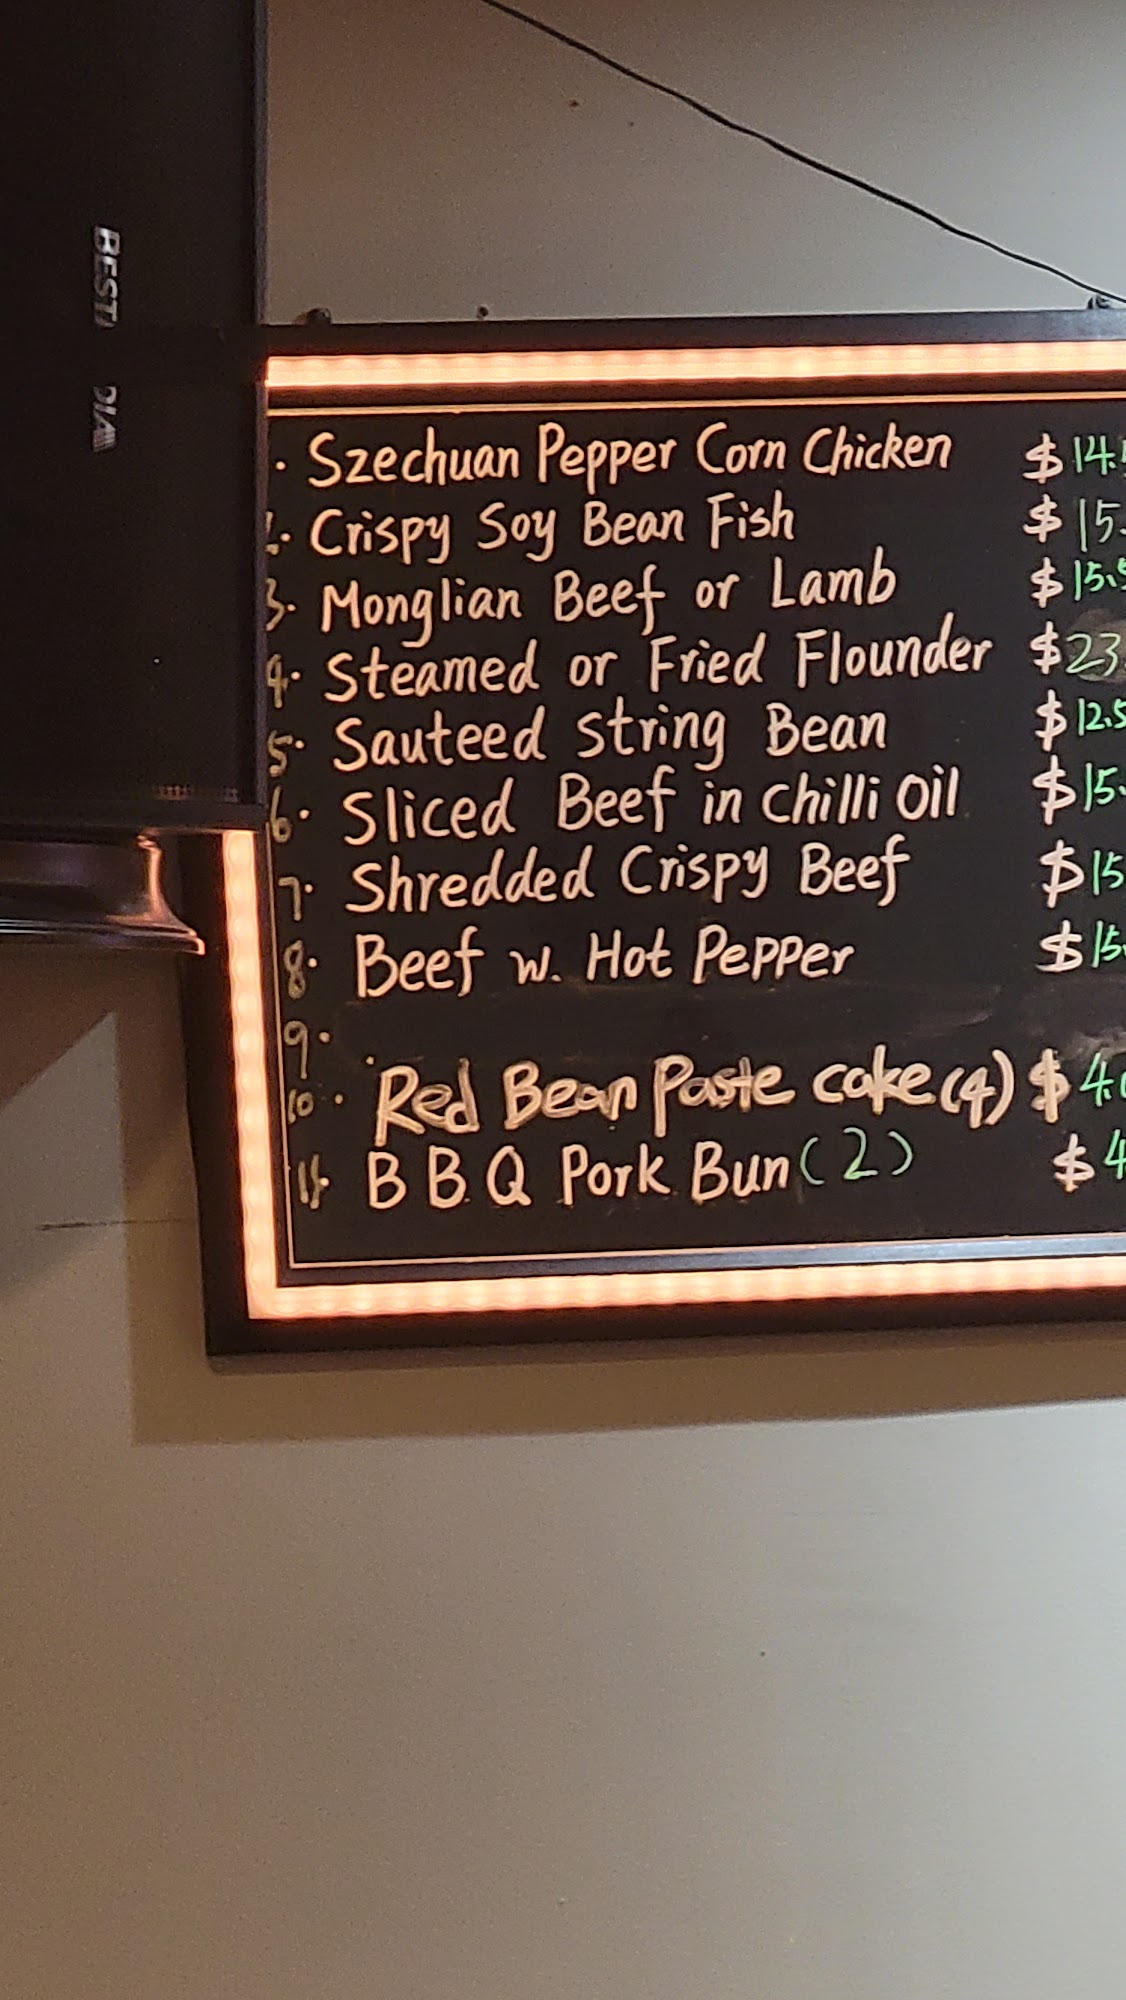 BEST
· Szechuan Pepper Corn Chicken $14.
2. Crispy Soy Bean Fish $15.
3. Monglian Beef or Lamb $15.5
4. Steamed or Fried Flounder $23.
5. Sauteed String Bean $12.5
6. Sliced Beef in Chilli Oil $15.
7. Shredded Crispy Beef $15
8. Beef w. Hot Pepper $15.
9.
10. Red Bean Paste cake (4) $4.0
11. B B Q Pork Bun (2) $4